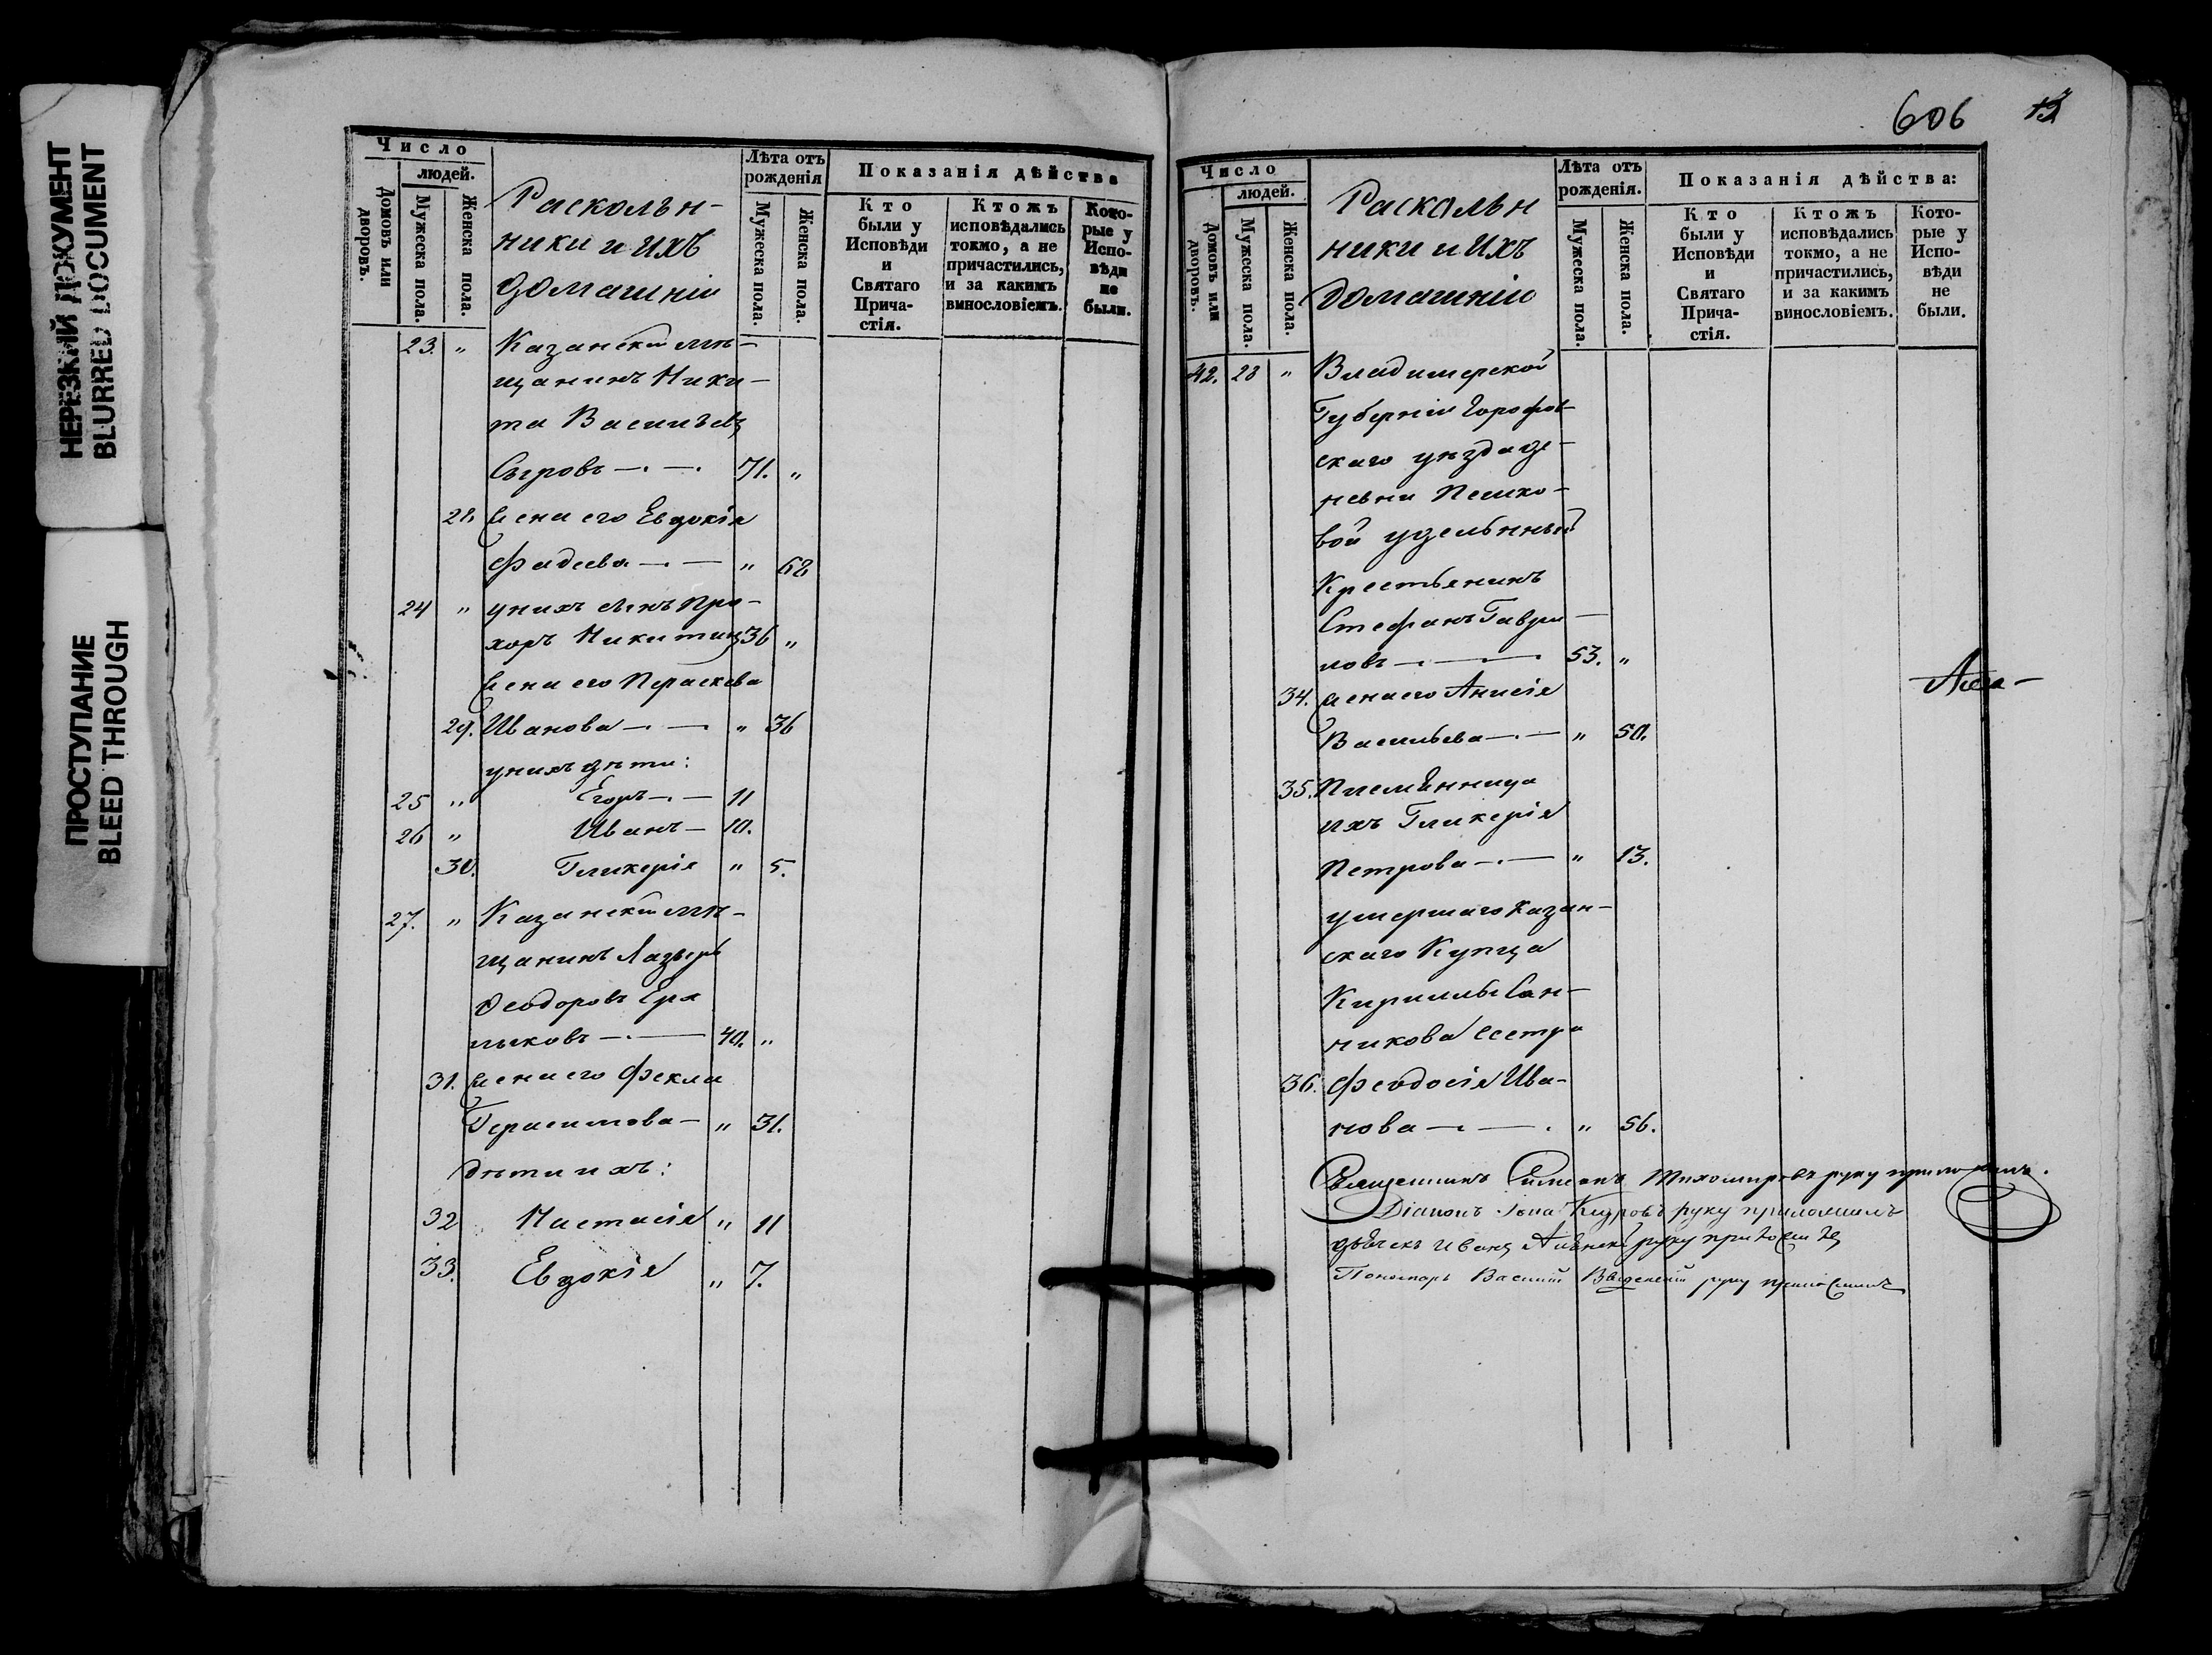 НЕРЕЗКИЙ ДОКУМЕНТ
BLURRED DOCUMENT
ПРОСТУПАНИЕ
BLEED THROUGH
Число
людей.
Домовъ или дворовъ.
Мужеска пола.
Женска пола.
Раскольн-
ники и ихъ
домашніи
Лѣта отъ рожденія
Мужеска пола.
Женска пола.
Показанія дѣйства
Кто были у Исповѣди и Святаго Прича-стія.
Ктожъ исповѣдались токмо, а не причастились, и за какимъ винословіемъ.
Кото-рые у Испо-вѣди не были.
23. " Казанскій мѣ-
щанинъ Ники-
та Васильевъ
Сыровъ — 71. "
28. Жена его Евдокія
Фадеева — " 68
24 " у нихъ сынъ Про-
хоръ Никитинъ 36 "
Жена его Параскева
29. Иванова — " 36
у нихъ дѣти:
25 " Егоръ — 11
26 " Иванъ — 10.
30. Гликерія " 5.
27. " Казанскій мѣ-
щанинъ Лазарь
Ѳеодоровъ Ерa
лыковъ — 40. "
31. Жена его Фекла
Герасимова — " 31.
дѣти ихъ:
32 Настасія " 11
33. Евдокія " 7.
606 13
Число
людей.
Домовъ или дворовъ.
Мужеска пола.
Женска пола.
Раскольн
ники и ихъ
домашніи
Лѣта отъ рожденія.
Мужеска пола.
Женска пола.
Показанія дѣйства:
Кто были у Исповѣди и Святаго Прича-стія.
Ктожъ исповѣдались токмо, а не причастились, и за какимъ винословіемъ.
Кото-рые у Испо-вѣди не были.
42. 28 " Владимерской
Губерніи Горохов-
скаго уѣзда де-
ревни
вой удельнный
Крестьянинъ
Стефанъ Гаври-
ловъ — 53. "
34. Жена его Анисія
Васильева — " 50.
35. Племянница
ихъ Гликерія
Петрова — " 13.
умершаго Казан-
скаго Купца
Кириллы Сан-
никова Сестра
36. Феодосія Ива-
нова — " 56.
Священникъ Симеонъ Тихомировъ руку приложилъ.
Діаконъ Іона руку приложилъ
дьячекъ Иванъ руку приложилъ
Пономарь Василій Введенскій руку приложилъ